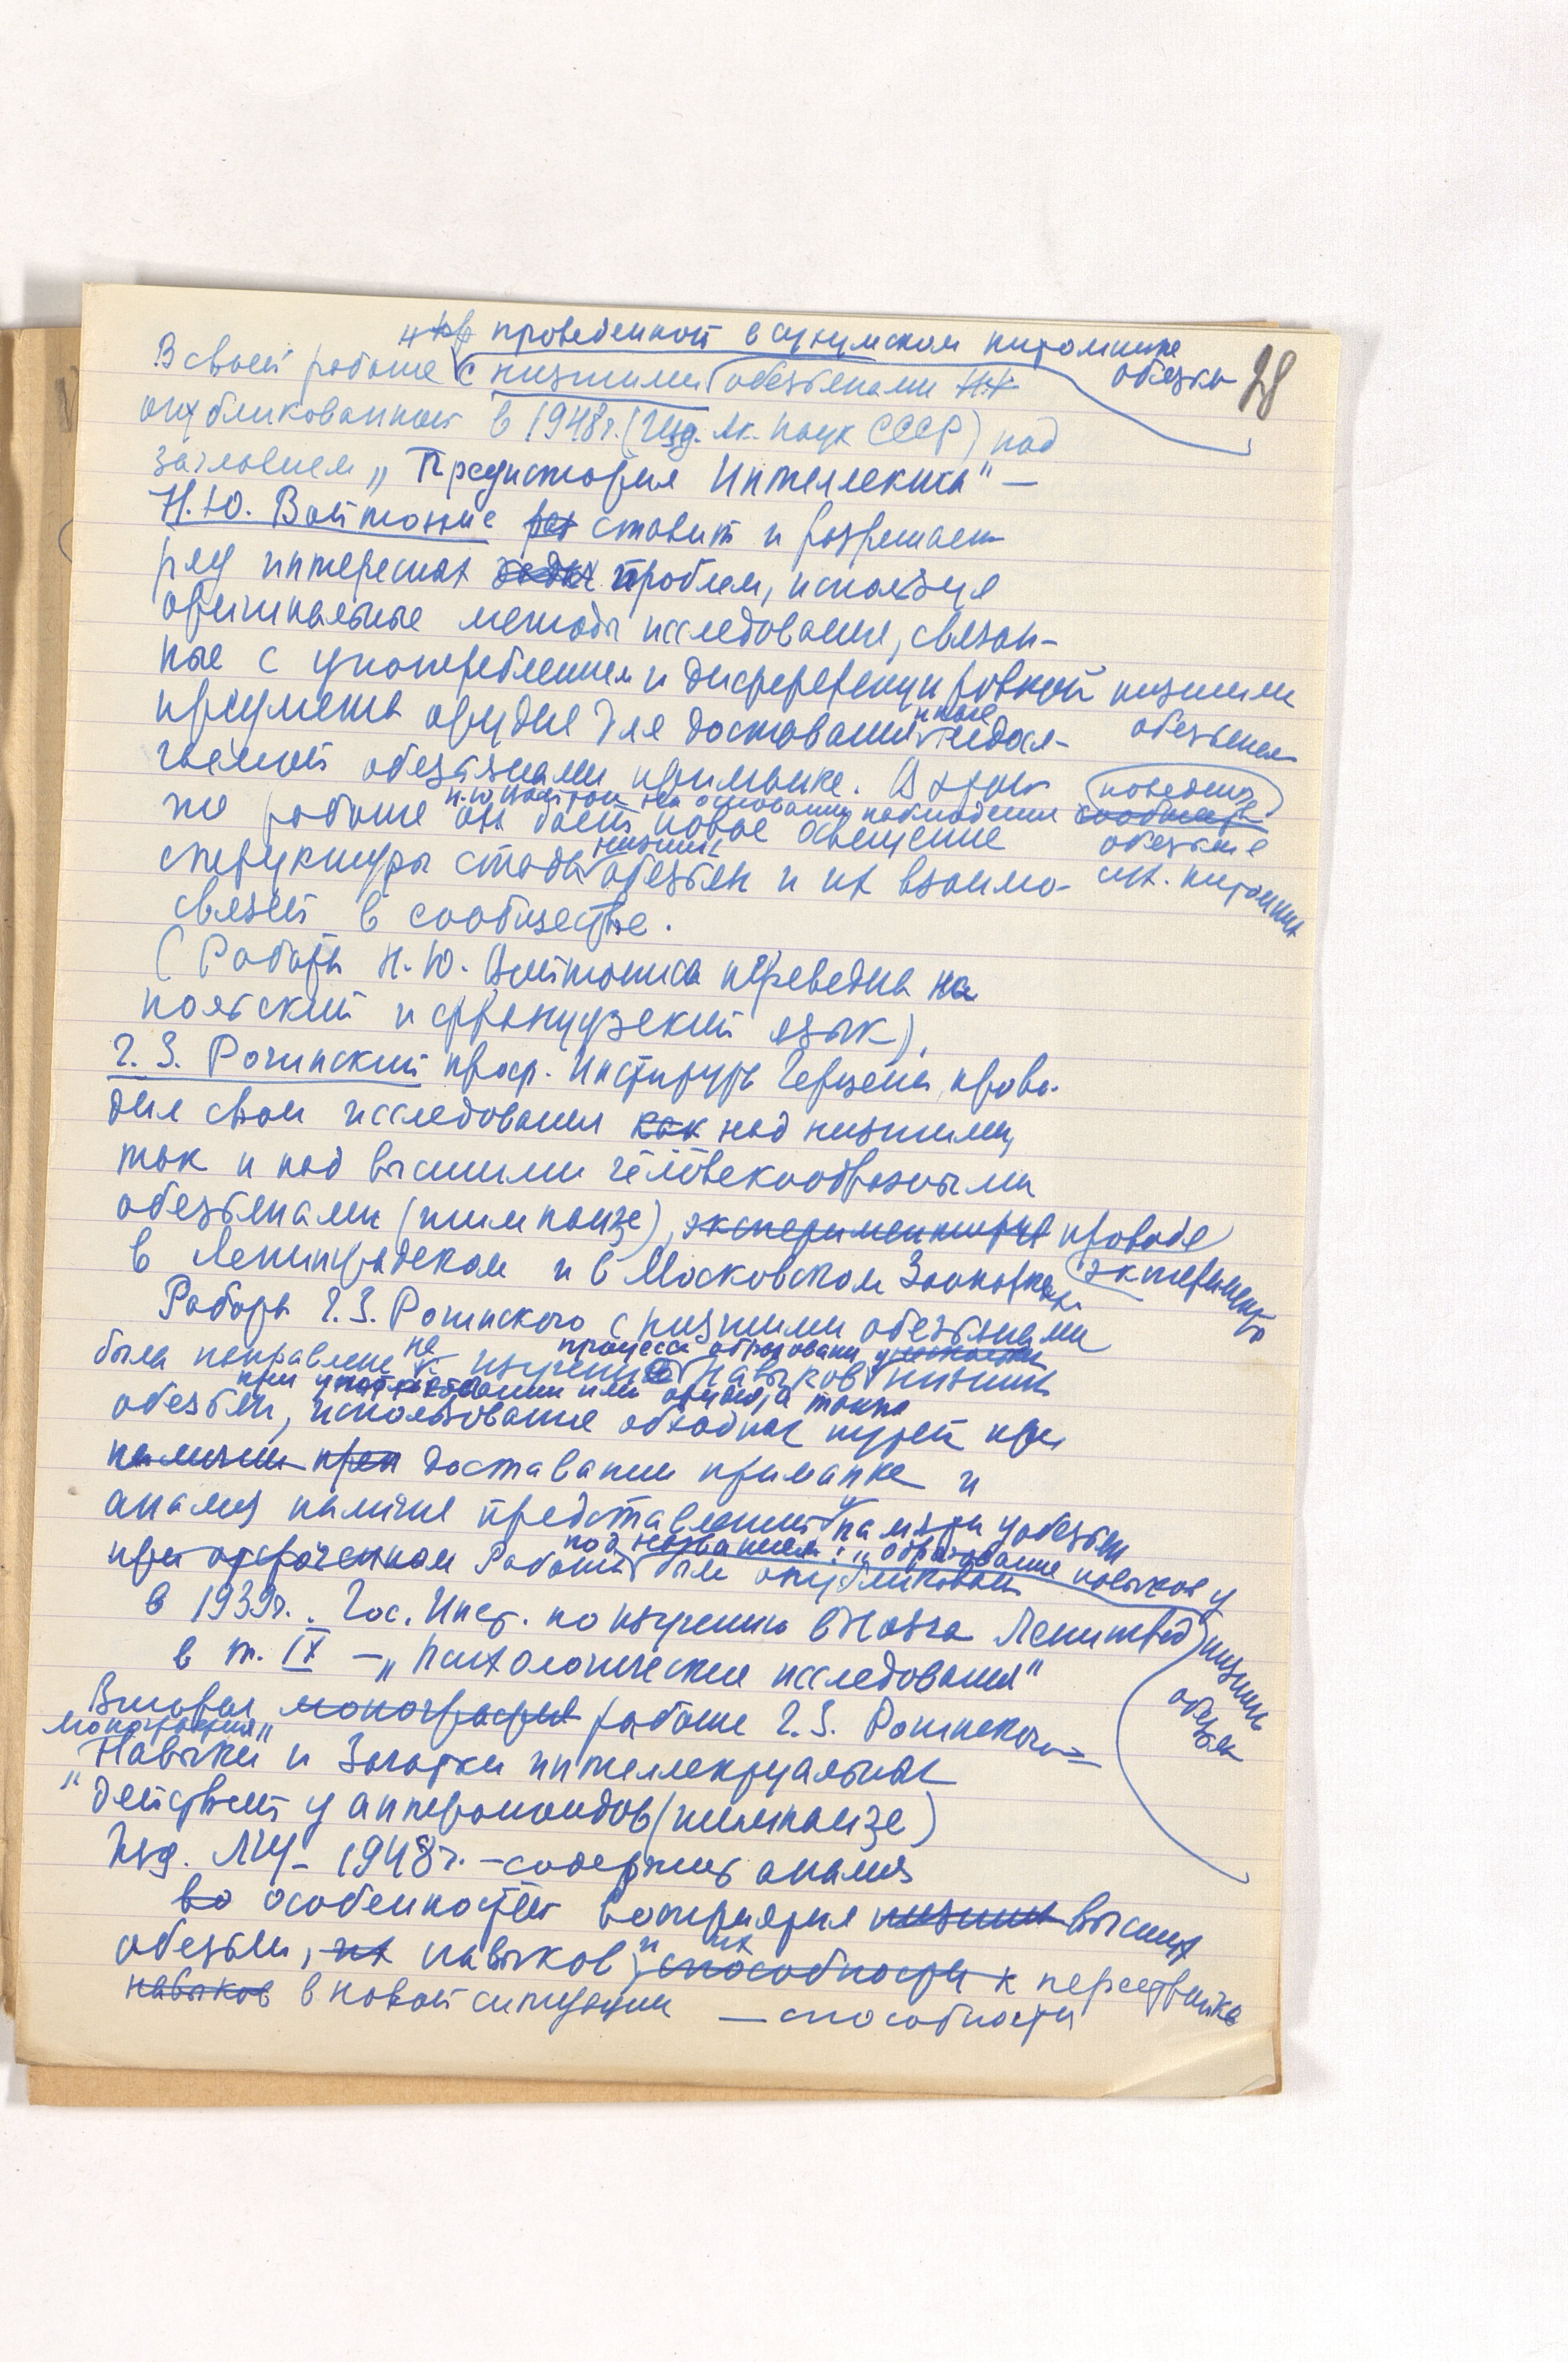 28
проведенной в сухумском питомнике
обезьян
В своей работе с низшими обезьянами
опубликованной в 1948г. (Изд. Ак. Наук СССР) под
заглавием „Предистория Интеллекта" —
Н.Ю. Войтонис ставит и разрешает
ряд интересных задач проблем, используя
оригинальные методы исследования, связан-
ные с употреблением и дифференцировкой низшими
обезьянами
предмета орудия для доставания
гаемой обезьянами приманке. В этой
Н.Ю. Войтон. на основании наблюдения
поведения
же работе он дает новое освещение
обезьяне
низших
структуры стада обезьян и их взаимо-
сух. питомник
связей в сообществе.
(Работа Н.Ю. Войтониса переведена на
польский и французский язык).
Г. З. Рогинский проф. Института Герцена, прово-
дил свои исследования как над низшими,
так и над высшими человекообразными
обезьянами (шимпанзе), экспериментируя проводя
эксперименты
в Ленинградском и в Московском Зоопарках.
Работа Г.З. Рогинского с низшими обезьянами
процесса образования
была направлена на изучение навыков низших
при орудий, а также
обезьян, использование обходных путей при
наличии при доставании приманке и
анализ наличие представлений памяти у обезьян
под названием: „Образование навыков у
низших
обезьян
при отсроченном Работа была опубликована
в 1939г. Гос. Инст. по изучению Мозга Ленинград
в т. IX — „Психологические исследования"
Вторая монография работе Г. З. Рогинского
монография
„Навыки и Зачатки интеллектуальных
действий у антропоидов (шимпанзе)
Изд. ЛГУ - 1948г. — содержит анализ
во особенностей восприятия низших высших
обезьян, их навыков и их способности к
навыков в новой ситуации — способности